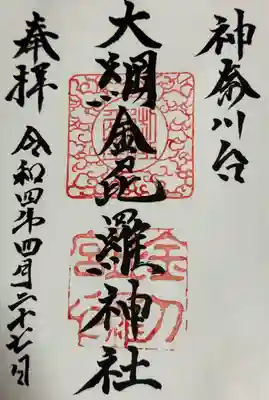 神奈川台
大綱金毘羅神社
奉拝
令和四年四月二十七日